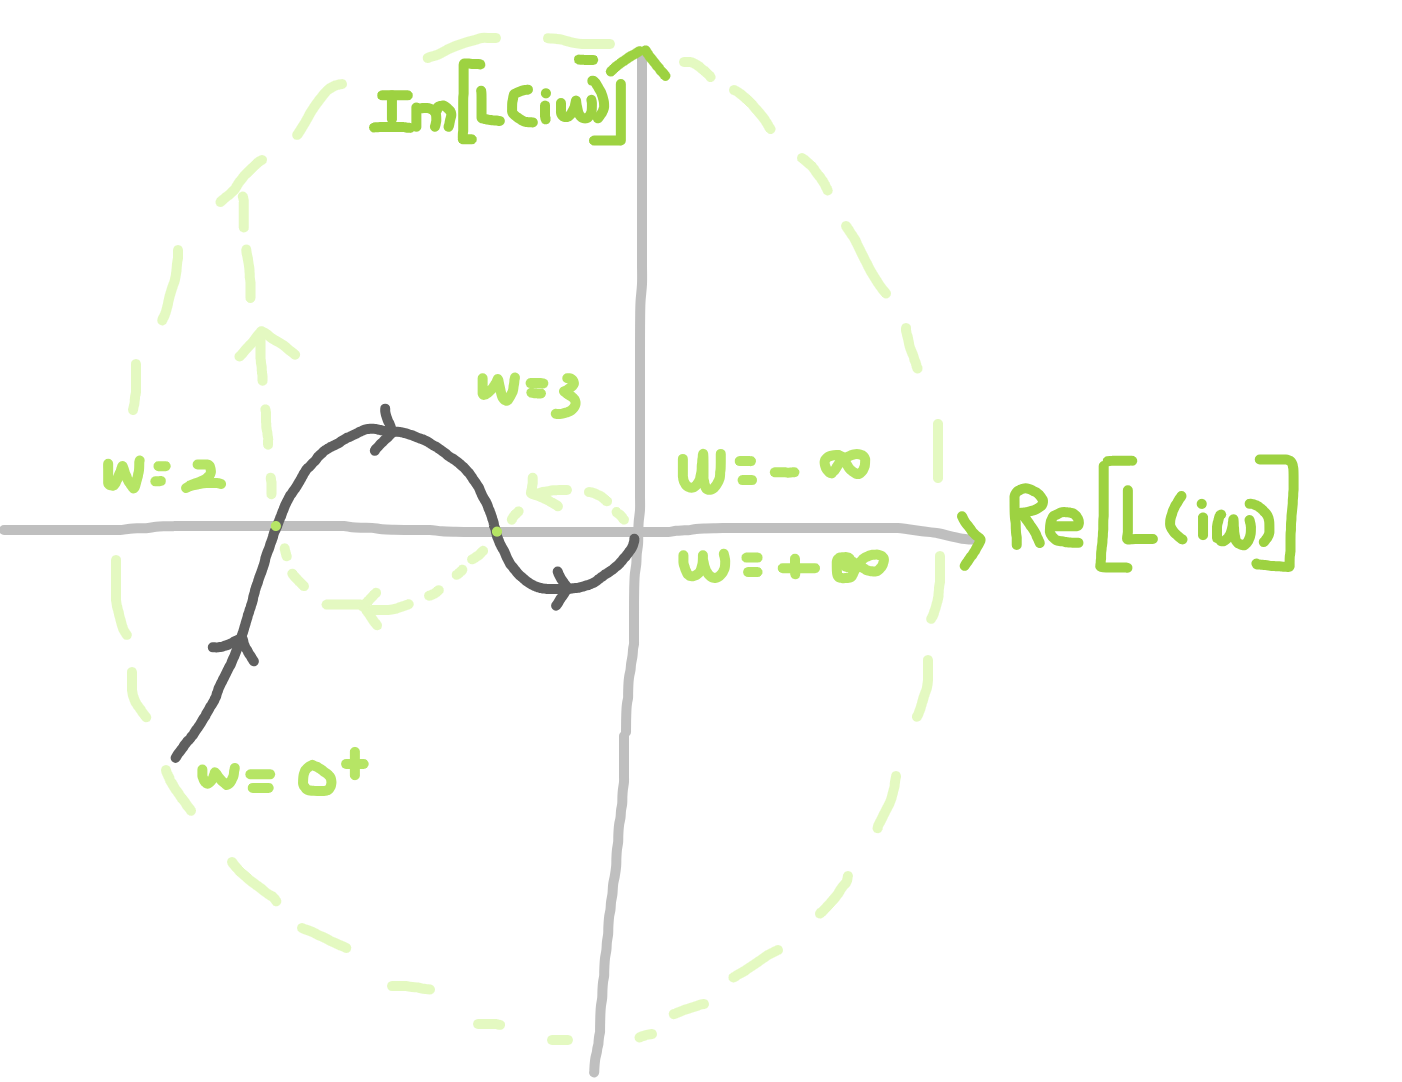 Im[L(iw)]
w=3
w=2
w=-∞
Re[L(iw)]
w=+∞
w=0⁺